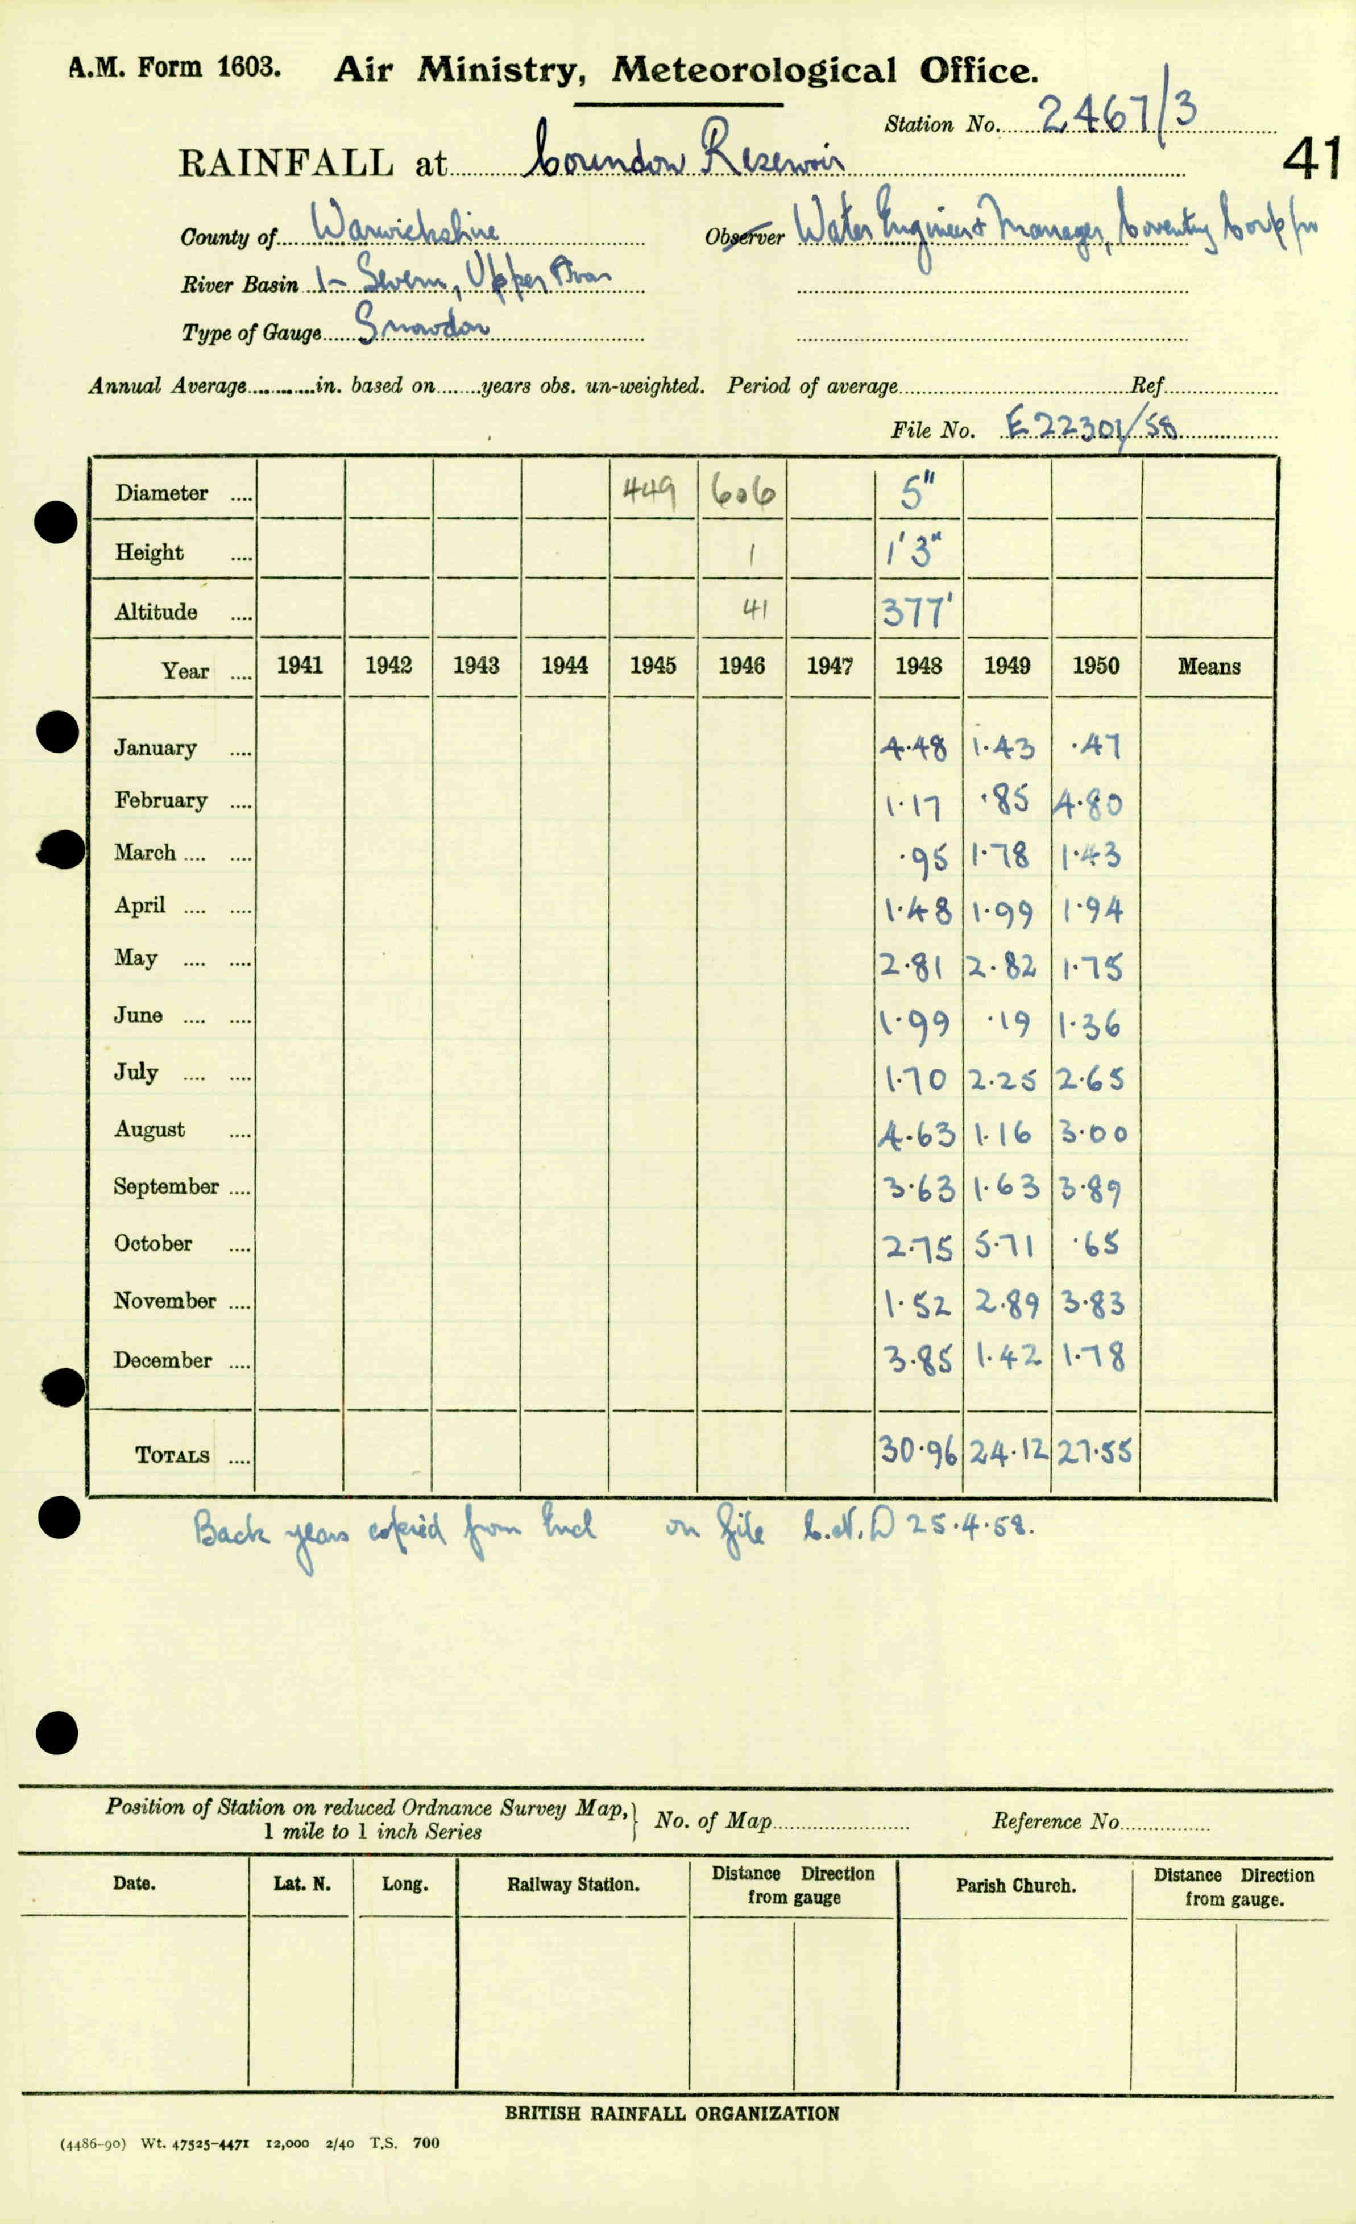 A.M. Form 1603. Air Ministry, Meteorological Office.
Station No. 2467/3
RAINFALL at Coundon Reservoir
41
County of Warwickshire Observer Water Engineer & Manager, Coventry Corp
River Basin 1- Severn, Upper Avon
Type of Gauge Snowdon
Annual Average............in. based on........years obs. un-weighted. Period of average.............................Ref.
File No. E22301/58
Diameter .... 449 606 5"
Height .... 1 1'3"
Altitude .... 41 377'
Year .... 1941 1942 1943 1944 1945 1946 1947 1948 1949 1950 Means
January .... 4.48 1.43 .47
February .... 1.17 .85 4.80
March .... .... .95 1.78 1.43
April .... .... 1.48 1.99 1.94
May .... .... 2.81 2.82 1.75
June .... .... 1.99 .19 1.36
July .... .... 1.70 2.25 2.65
August .... 4.63 1.16 3.00
September .... 3.63 1.63 3.89
October .... 2.75 5.71 .65
November .... 1.52 2.89 3.83
December .... 3.85 1.42 1.78
TOTALS .... 30.96 24.12 27.55
Back years copied from Encl on file 25.4.58.
Position of Station on reduced Ordnance Survey Map,} No. of Map Reference No.
1 mile to 1 inch Series
Date. Lat. N. Long. Railway Station. Distance Direction from gauge Parish Church. Distance Direction from gauge.
BRITISH RAINFALL ORGANIZATION
(4486-90) Wt. 47525-4471 12,000 2/40 T.S. 700